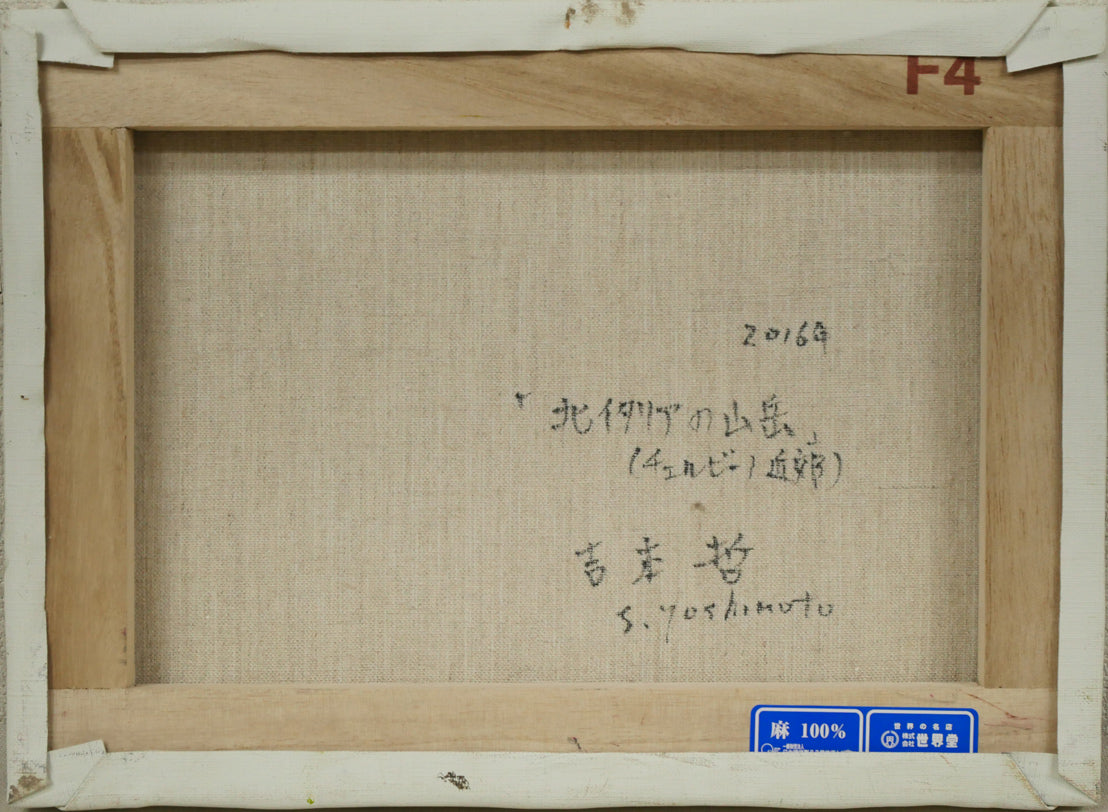 F4
2016年
「北イタリアの山岳」
(チェルビーノ近郊)
吉本 哲
S. Yoshimoto
麻 100%
世界の名店
株式会社 世界堂